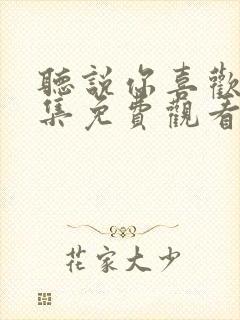 聽說你喜歡
集免費觀看
花家大少